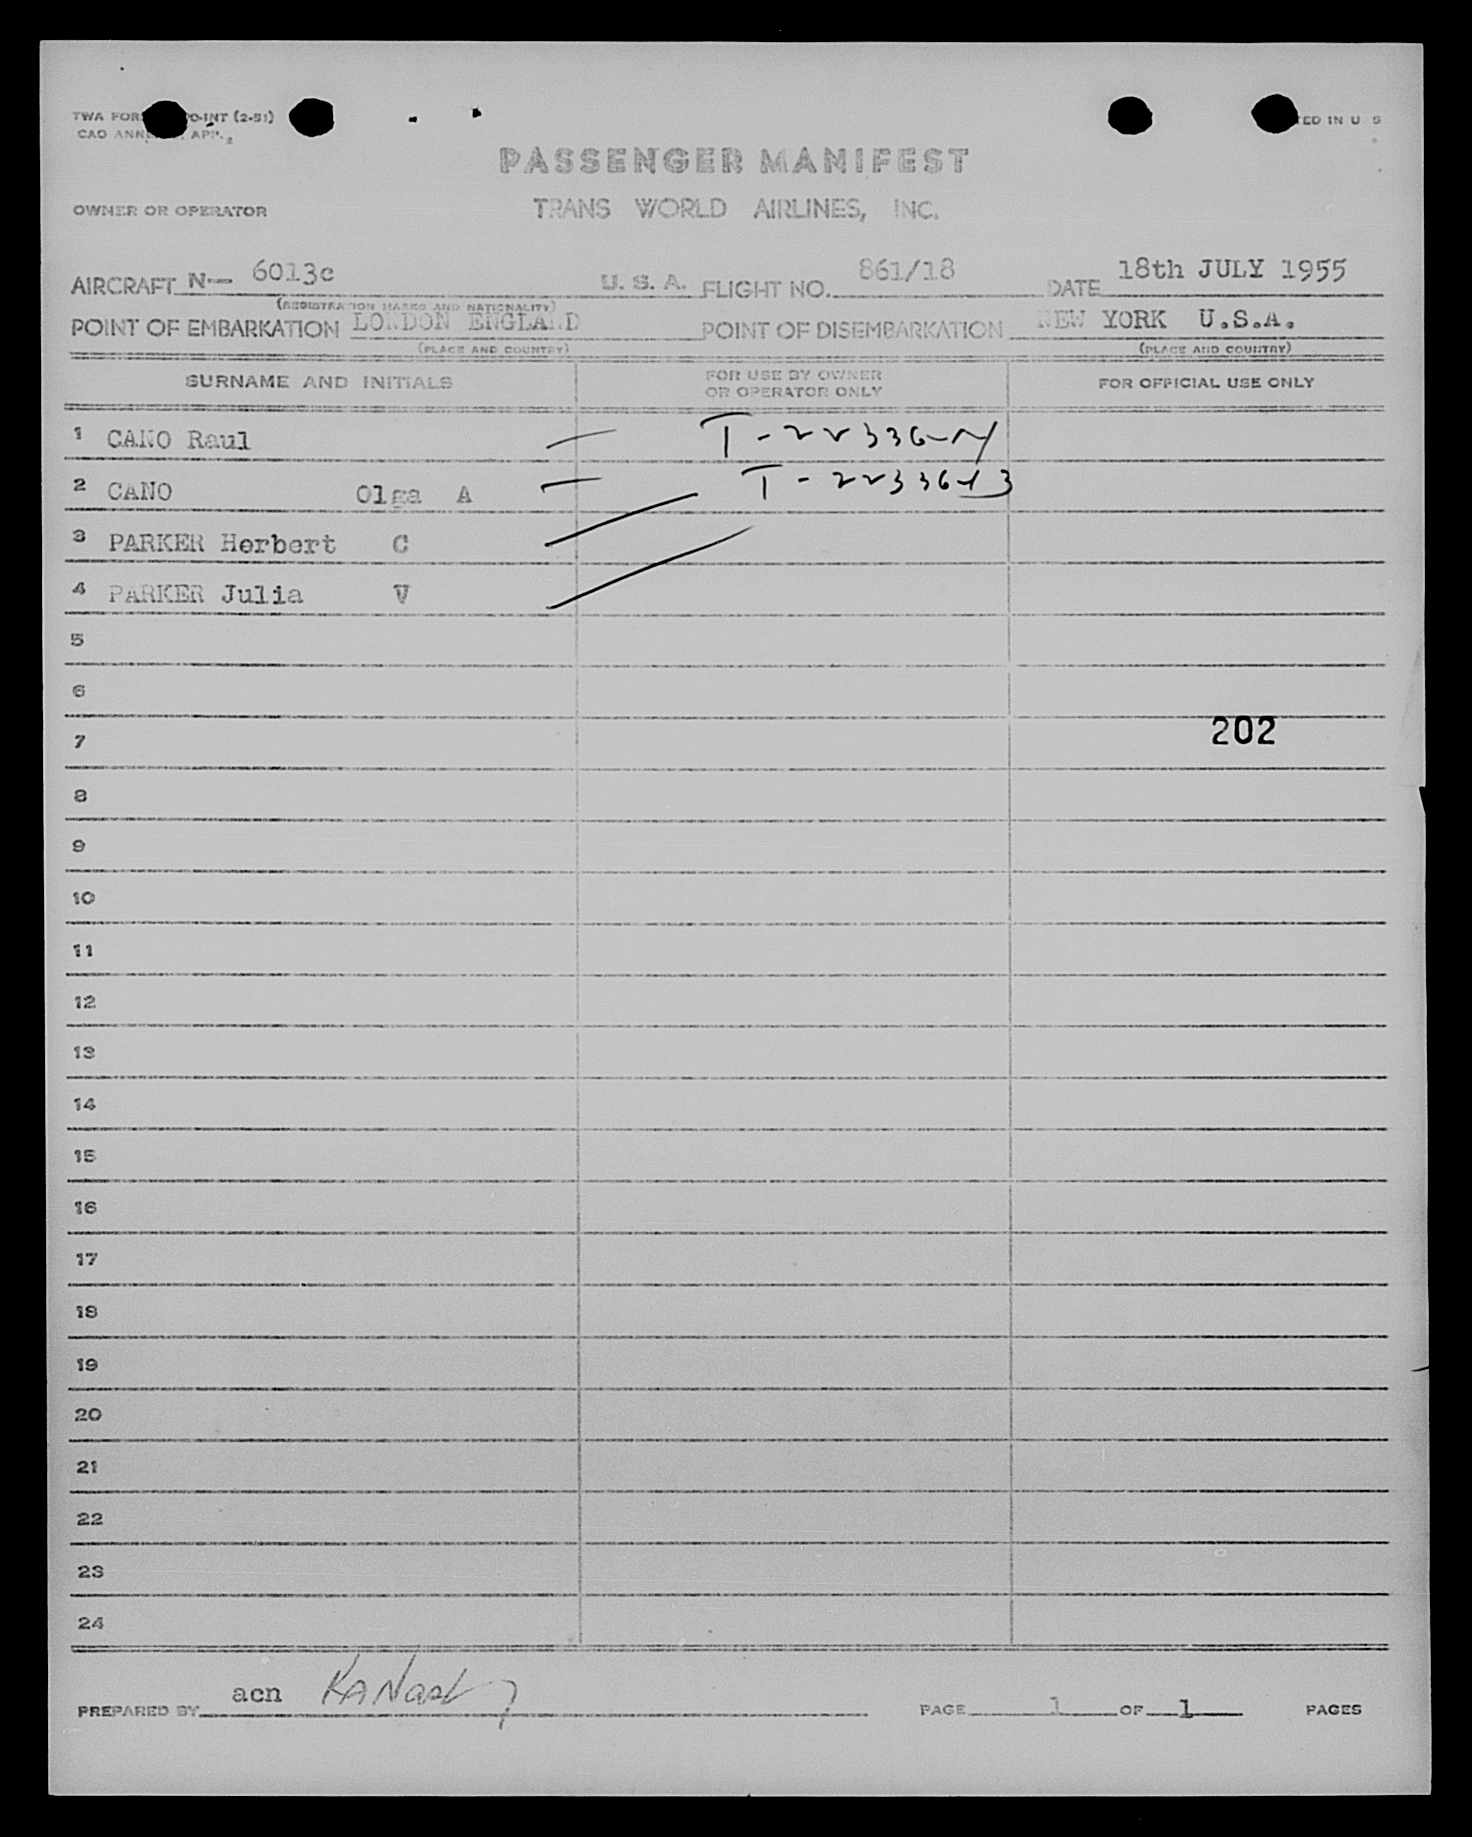 (2-51)
CAO
PASSENGER MANIFEST
OWNER OR OPERATOR TRANS WORLD AIRLINES, INC.
AIRCRAFT N— 6013c U. S. A. FLIGHT NO. 861/18 DATE 18th JULY 1955
(REGISTRATION MARKS AND NATIONALITY)
POINT OF EMBARKATION LONDON ENGLAND POINT OF DISEMBARKATION NEW YORK U.S.A.
(PLACE AND COUNTRY) (PLACE AND COUNTRY)
SURNAME AND INITIALS FOR USE BY OWNER OR OPERATOR ONLY FOR OFFICIAL USE ONLY
1 CANO Raul
2 CANO Olga A
3 PARKER Herbert C
4 PARKER Julia V
5
6
7 202
8
9
10
11
12
13
14
15
16
17
18
19
20
21
22
23
24
PREPARED BY acn PAGE 1 OF 1 PAGES